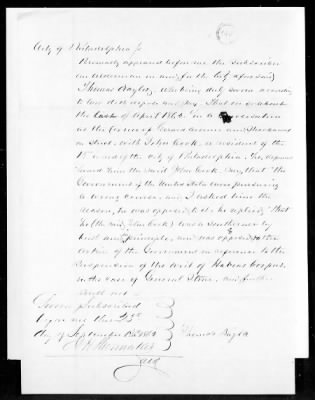 City of Philadelphia ss
Personally appeared before me the subscriber
an alderman in and for the City aforesaid
Thomas Taylor, who being duly sworn according
to law doth depose and say. That on or about
the last of April 1862 in a conversation
at the corner of Girard Avenue and
Street, with John Cook, a resident of the
Ward of the City of Philadelphia. he, deponent
heard him the said John Cook, Say, that "the
Government of the United States were pursuing
a wrong course, and I asked him the
reason, he was opposed to it, he replied, "that
he (the said John Cook) was a Southerner by
birth and principles, and was opposed to the
action of the Government in reference to the
suspension of the writ of Habeas Corpus,
in the case of General Stone, and further
saith not
Sworn & Subscribed
before me this 23d
day of September 1862
Thomas Taylor
Ald